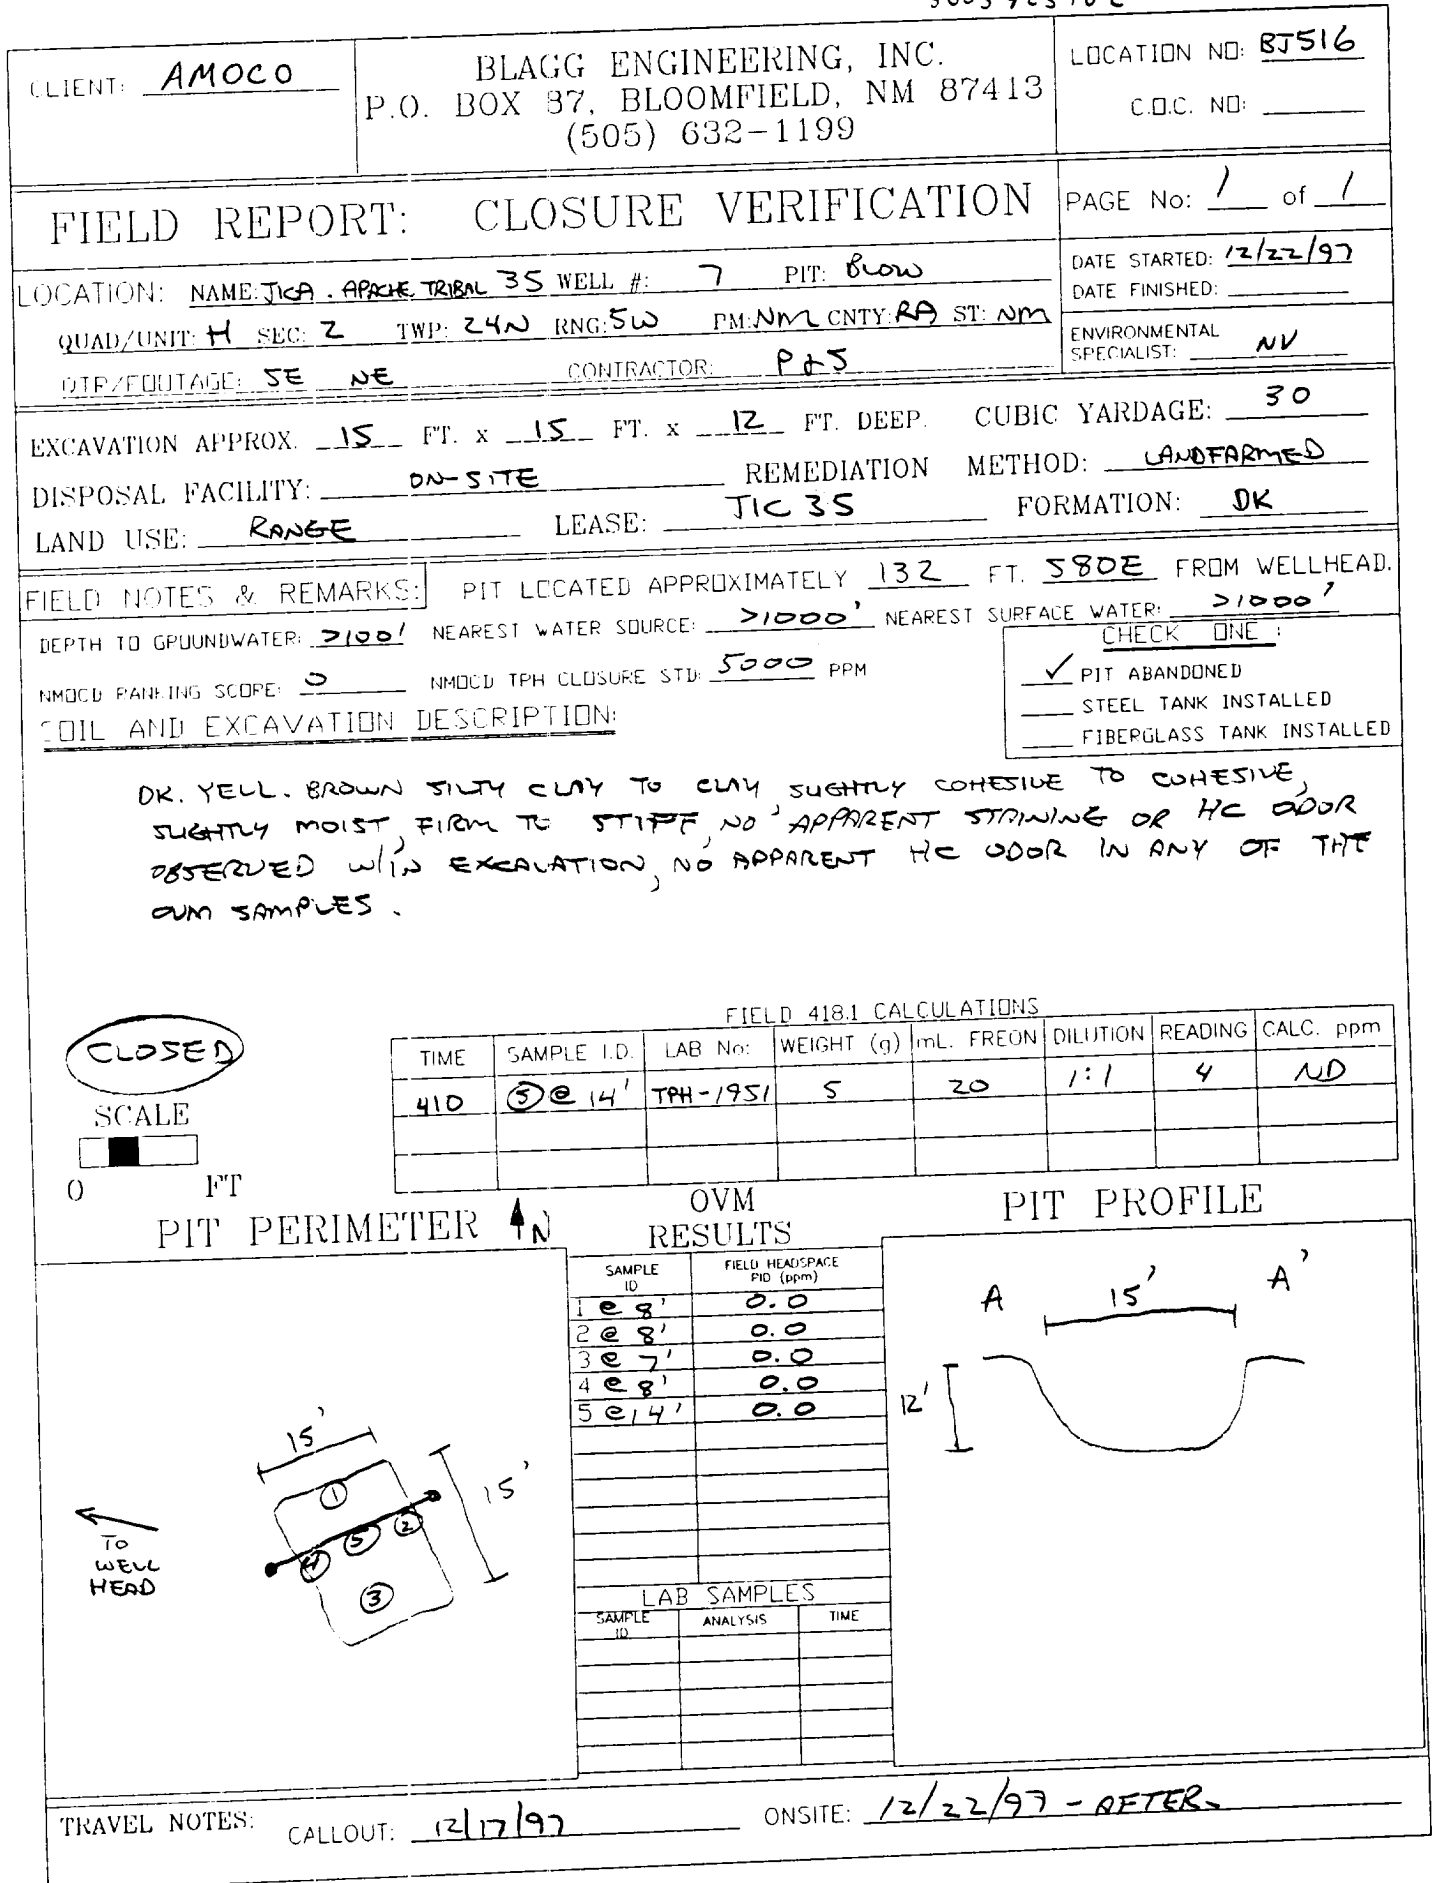 CLIENT: AMOCO
BLAGG ENGINEERING, INC.
P.O. BOX 87, BLOOMFIELD, NM 87413
(505) 632-1199
LOCATION NO: BJ516
C.O.C. NO:
FIELD REPORT: CLOSURE VERIFICATION
PAGE No: 1 of 1
LOCATION: NAME: JICA. APACHE TRIBAL 35 WELL #: 7 PIT: BLOW
QUAD/UNIT: H SEC: 2 TWP: 24N RNG: 5W PM: NM CNTY: RA ST: NM
QTR/FOOTAGE: SE NE CONTRACTOR: P&S
DATE STARTED: 12/22/97
DATE FINISHED:
ENVIRONMENTAL
SPECIALIST: NV
EXCAVATION APPROX. 15 FT. x 15 FT. x 12 FT. DEEP. CUBIC YARDAGE: 30
DISPOSAL FACILITY: ON-SITE REMEDIATION METHOD: LANDFARMED
LAND USE: RANGE LEASE: JIC 35 FORMATION: DK
FIELD NOTES & REMARKS: PIT LOCATED APPROXIMATELY 132 FT. S80E FROM WELLHEAD.
DEPTH TO GROUNDWATER: >100' NEAREST WATER SOURCE: >1000' NEAREST SURFACE WATER: >1000'
NMOCD RANKING SCORE: 0 NMOCD TPH CLOSURE STD: 5000 PPM
CHECK ONE :
✓ PIT ABANDONED
STEEL TANK INSTALLED
FIBERGLASS TANK INSTALLED
SOIL AND EXCAVATION DESCRIPTION:
DK. YELL. BROWN SILTY CLAY TO CLAY, SLIGHTLY COHESIVE TO COHESIVE,
SLIGHTLY MOIST, FIRM TO STIFF, NO APPARENT STAINING OR HC ODOR
OBSERVED W/IN EXCAVATION, NO APPARENT HC ODOR IN ANY OF THE
OVM SAMPLES.
CLOSED
SCALE
0 FT
FIELD 418.1 CALCULATIONS
TIME SAMPLE I.D. LAB No: WEIGHT (g) mL. FREON DILUTION READING CALC. ppm
1410 5 @ 14' TPH-1951 5 20 1:1 4 ND
PIT PERIMETER N
OVM
RESULTS
PIT PROFILE
SAMPLE
ID
FIELD HEADSPACE
PID (ppm)
1 @ 8' 0.0
2 @ 8' 0.0
3 @ 7' 0.0
4 @ 8' 0.0
5 @ 14' 0.0
LAB SAMPLES
SAMPLE
ID
ANALYSIS TIME
15'
15'
1
2
5
4
3
TO
WELL
HEAD
A 15' A'
12'
TRAVEL NOTES: CALLOUT: 12/17/97 ONSITE: 12/22/97 - AFTER.